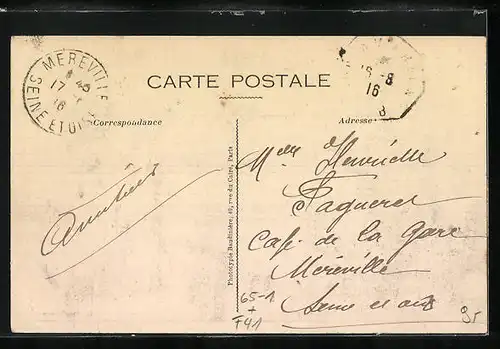 MEREVILLE
17
16
SEINE ET OISE
16-8
16
8
CARTE POSTALE
Correspondance
Adresse
Amitiés
Melle Henriette
Paqueret
Café de la Gare
Méréville
Seine et Oise
Phototypie Baudinière, rue du Caire, Paris
65-1
+
F41